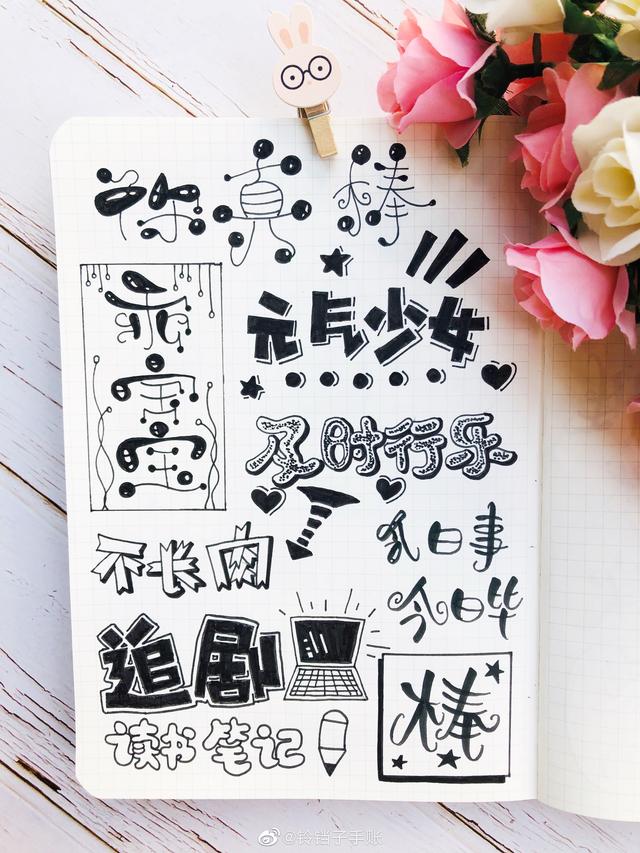 你真棒
乖宝宝
元气少女
及时行乐
不长肉
今日事
今日毕
追剧
棒
读书笔记
@铃铛子手账